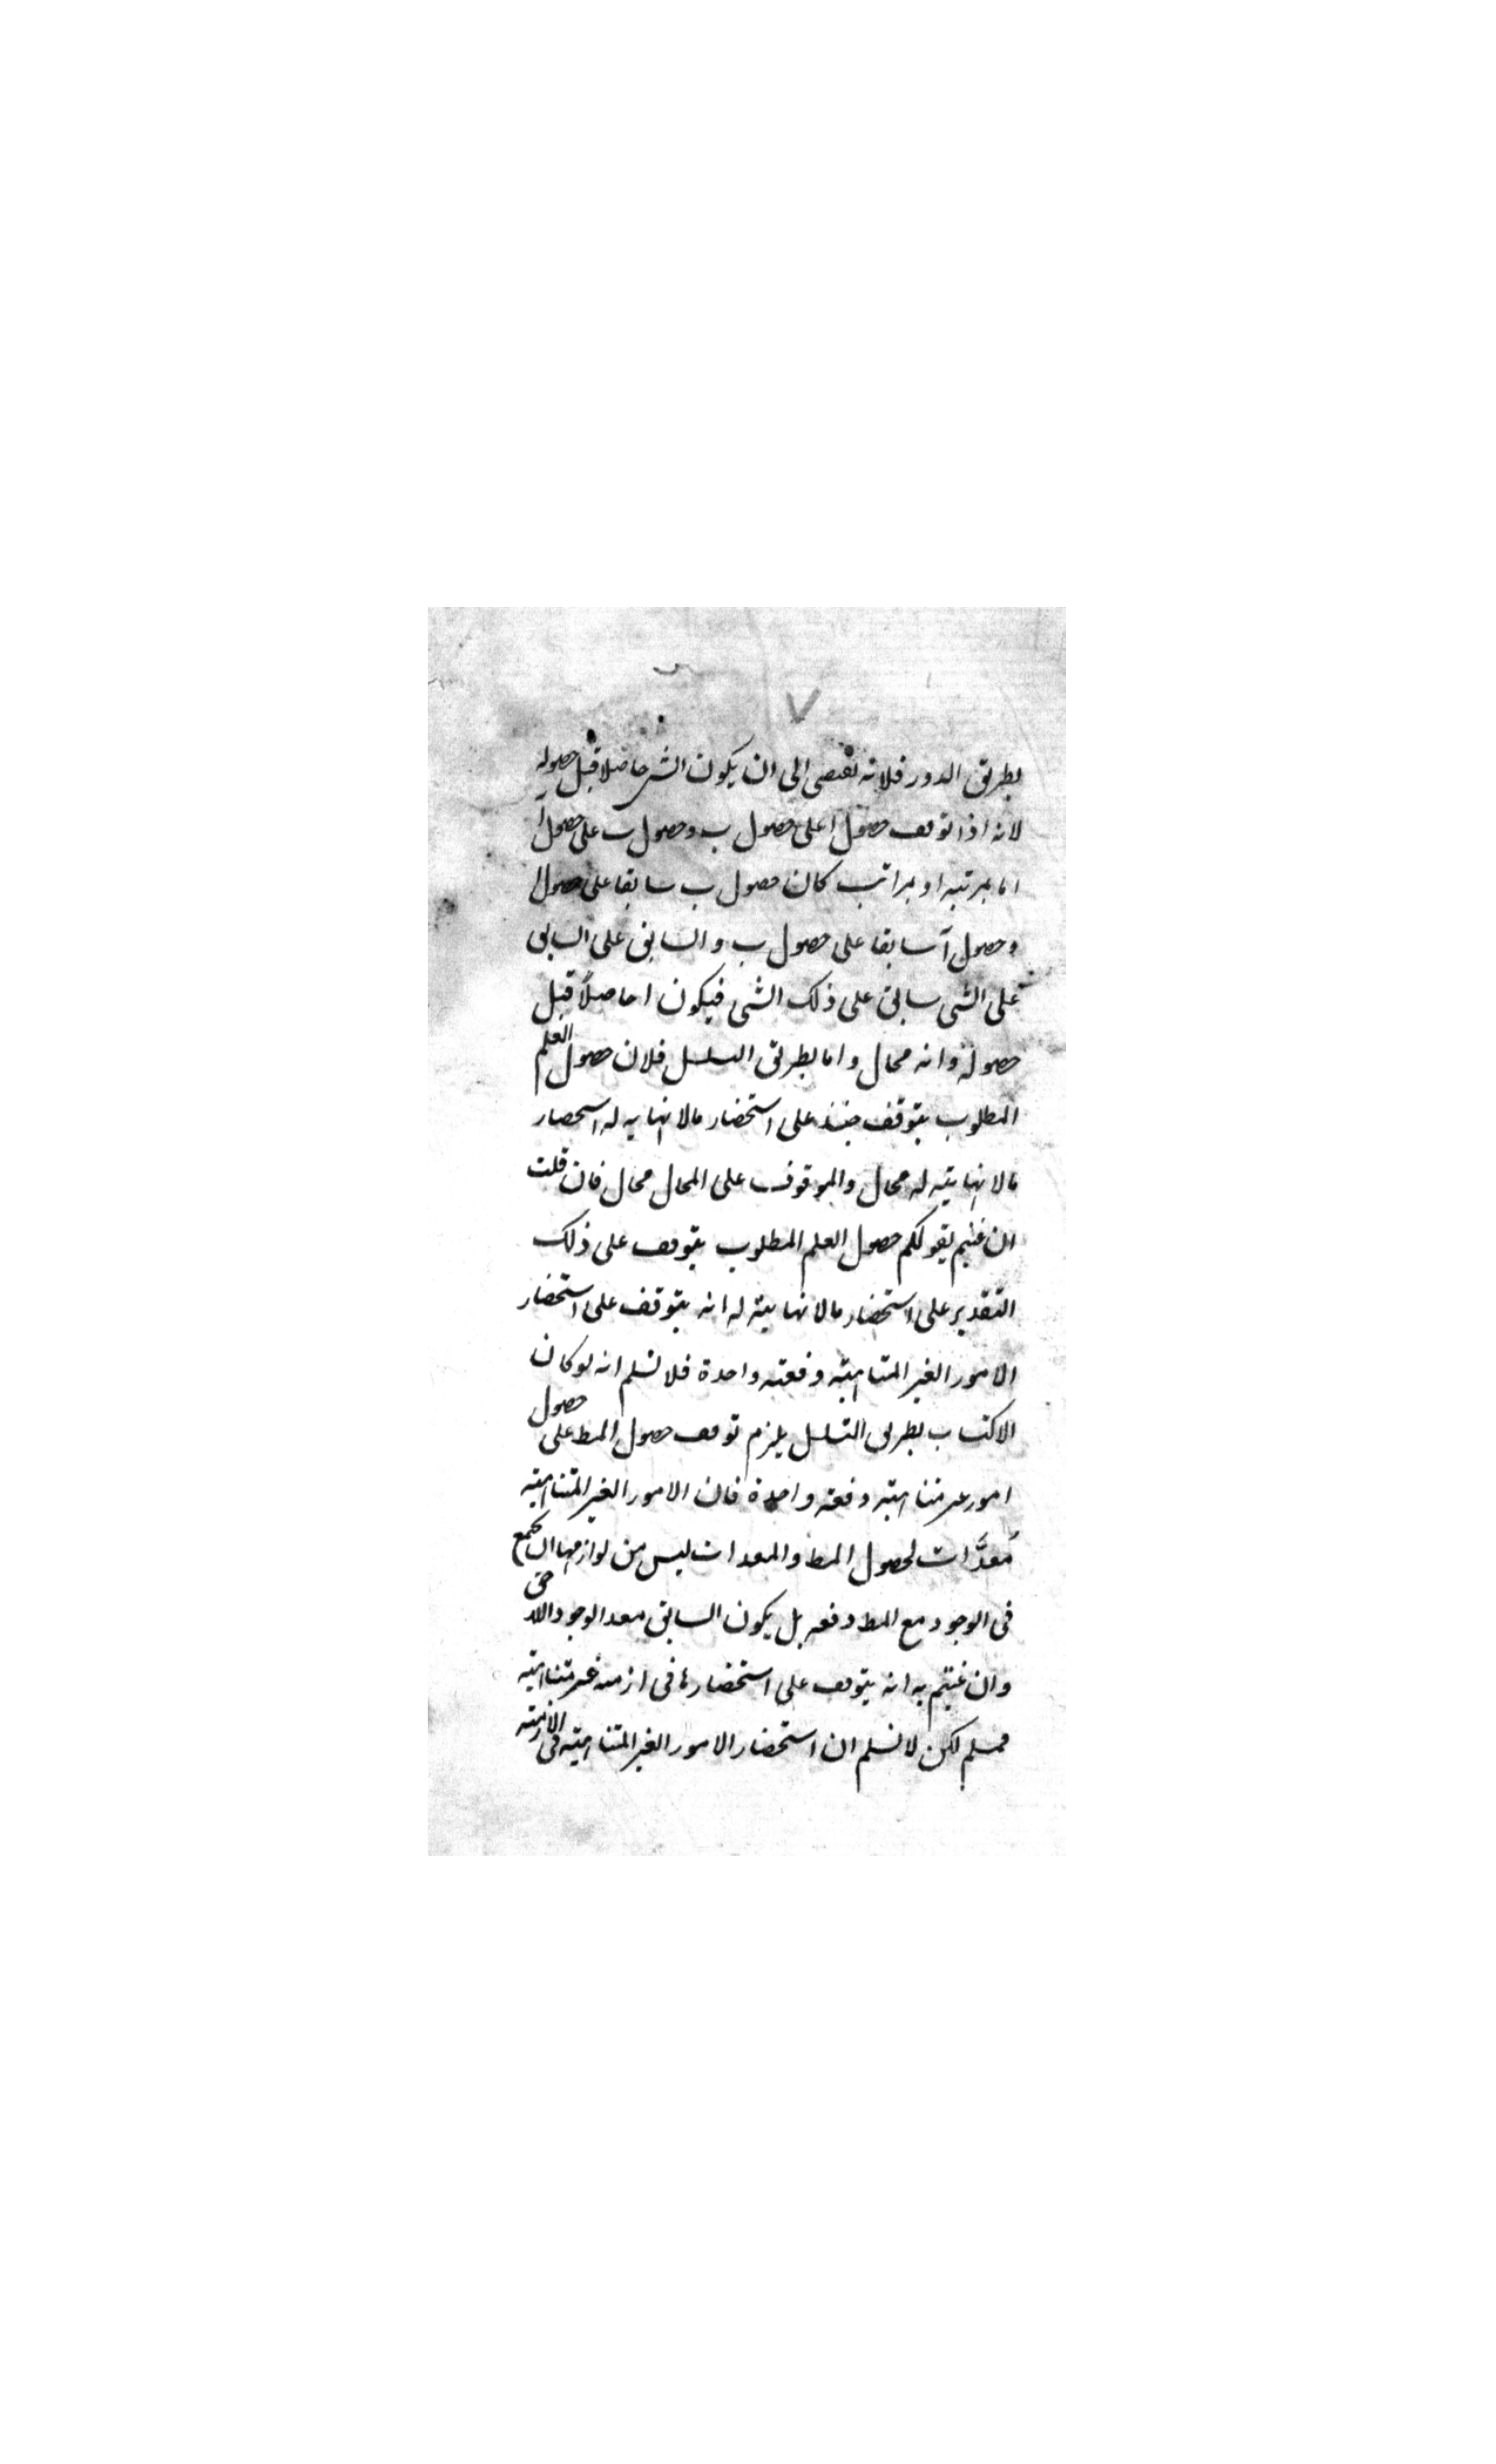 ٧
بطريق الدور فلانه يفضى الى ان يكون الشى حاصلا قبل حصوله
لانه اذا توقف حصول ا على حصول ب وحصول ب على حصول ا
اما بمرتبه او بمراتب كان حصول ب سابقا على حصول ا
وحصول آ سابقا على حصول ب والسابق على السابق
على الشى سابق على ذلك الشى فيكون ا حاصلاً قبل
حصوله وانه محال واما بطريق التسلسل فلان حصول العلم
المطلوب يتوقف حينئذ على استحضار مالانهايه له استحضار
مالانهايته له محال والموقوف على المحال محال فان قلت
ان عنيتم بقولكم حصول العلم المطلوب يتوقف على ذلك
التقدير على استحضار مالانهاية له انه يتوقف على استحضار
الامور الغير المتناهية دفعته واحدة فلا نسلم انه لو كان
الاكتساب بطريق التسلسل يلزم توقف حصول المط على حصول
امور غير متناهية دفعه واحدة فان الامور الغير المتناهية
مُعدَّات لحصول المط والمعدات ليس من لوازمها ان تجمع
فى الوجود مع المط دفعه بل يكون السابق معدا لوجود اللاحق
وان عنيتم به انه يتوقف على استحضارها فى ازمنه غير متناهية
فمسلم لكن لا نسلم ان استحضار الامور الغير المتناهية فى الازمنته